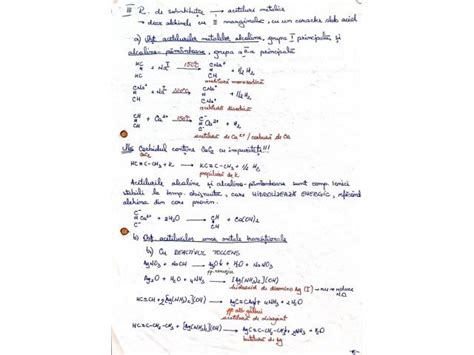 III R. de substituție → acetiluri metalice
→ doar alchinele cu ≡ marginală, cu un caracter slab acid
a) Obț. acetilurilor metalelor alcaline, grupa I principală și
alcalino-pământoase, grupa a II-a principală
HC≡CH + Na 150°C → C⁻Na⁺≡CH + ½ H₂
acetilură monosodică
C⁻Na⁺≡CH + Na 220°C → C⁻Na⁺≡C⁻Na⁺ + ½ H₂
acetilură disodică
CH≡CH + Ca 150°C → C⁻≡C⁻ Ca²⁺ + H₂
acetilură de Ca²⁺ / carbură de Ca
Obs Carbidul conține CaC₂ cu impurități!!!
CaC₂
HC≡C-CH₃ + K → KC≡C-CH₃ + ½ H₂
propilură de K
Acetilurile alcaline și alcalino-pământoase sunt comp. ionici
stabili la temp. obișnuite, care HIDROLIZEAZĂ ENERGIC, refăcând
alchina din care provin.
C⁻≡C⁻ Ca²⁺ + 2H₂O → CH≡CH + Ca(OH)₂
b) Obț. acetilurilor unor metale tranziționale
b₁) Cu REACTIVUL TOLLENS
AgNO₃ + NaOH → AgOH↓ + NaNO₃
AgOH + 2NH₃ → [Ag(NH₃)₂](OH)
hidroxid de diamino Ag (I)
HC≡CH + 2[Ag(NH₃)₂](OH) → AgC≡CAg↓ + 4NH₃ + 2H₂O
ppt. alb gălbui
acetilură de diargint
HC≡C-CH₂-CH₃ + [Ag(NH₃)₂](OH) → AgC≡C-CH₂-CH₃ + 2NH₃ + H₂O
butilură de Ag